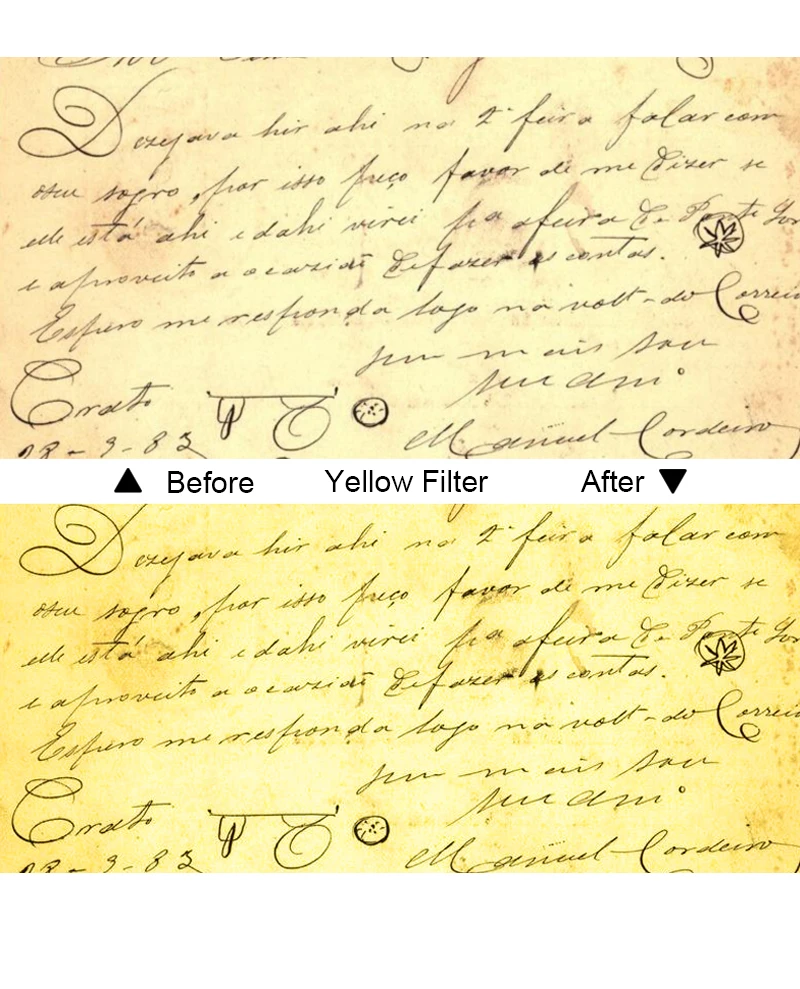 Dezejava hir ahi na 2ª feira falar com
oseu sogro, por isso peço favor de me dizer se
elle está ahi e dahi virei pa afeira de Ponte
e aproveito a ocazião defazer as contas.
Espero me responda logo na volt-do Correio
sem mais sou
Crato
28-9-83
Manuel Cordeiro
Before Yellow Filter After
Dezejava hir ahi na 2ª feira falar com
oseu sogro, por isso peço favor de me dizer se
elle está ahi e dahi virei pa afeira de Ponte
e aproveito a ocazião defazer as contas.
Espero me responda logo na volt-do Correio
sem mais sou
Crato
28-9-83
Manuel Cordeiro